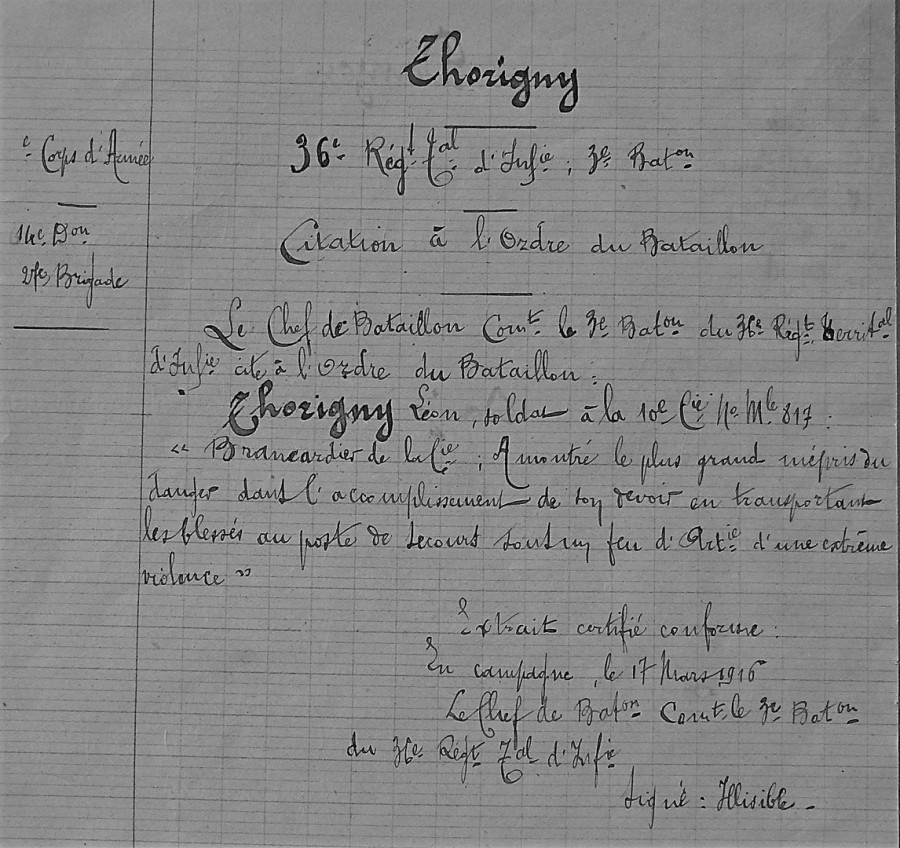 Thorigny
e Corps d'Armée
36e Régt Tal d'Infie ; 3e Baton
14e Don
Citation à l'Ordre du Bataillon
27e Brigade
Le Chef de Bataillon Comt le 3e Baton du 36e Régt territal
d'Infie cite à l'Ordre du Bataillon :
Thorigny Léon, soldat à la 10e Cie No Mle 817 :
« Brancardier de la Cie ; A montré le plus grand mépris du
danger dans l'accomplissement de son devoir en transportant
les blessés au poste de secours sous un feu d'Artie d'une extrême
violence »
Extrait certifié conforme :
En campagne, le 17 Mars 1916
Le Chef de Baton Comt le 3e Baton
du 36e Régt Tal d'Infie
Signé : Illisible -